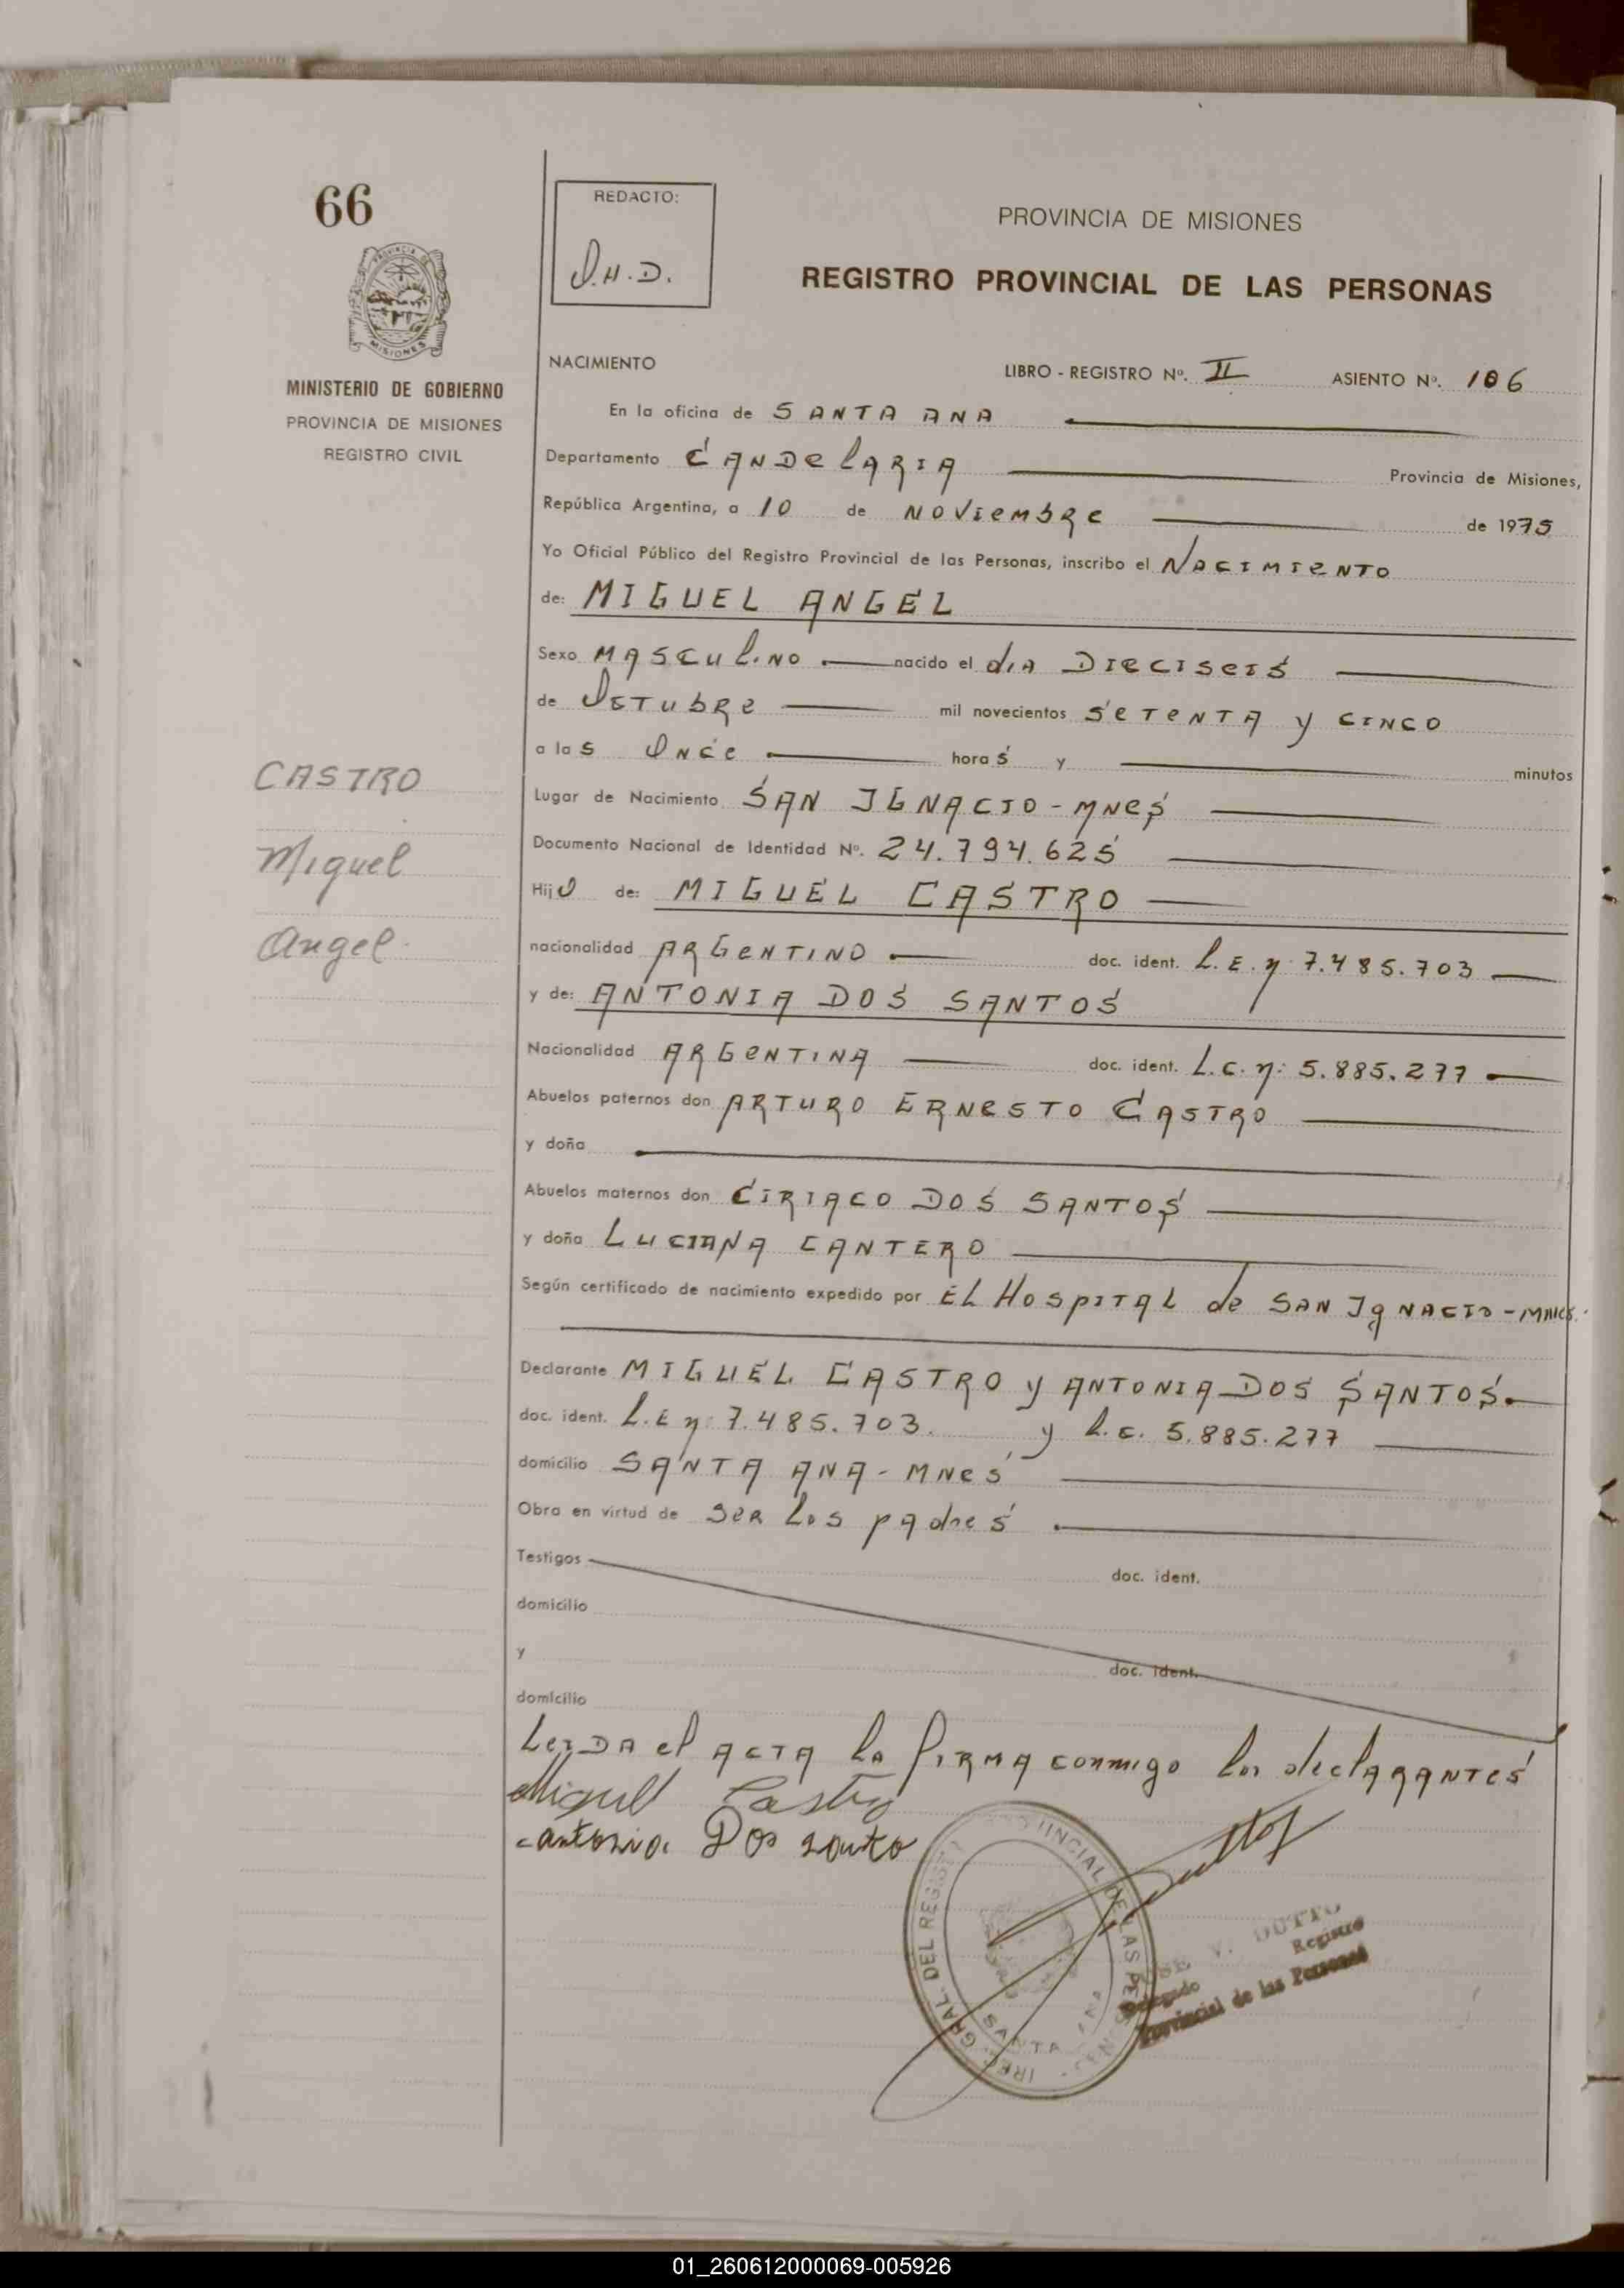 66
REDACTO:
O.H.D.
PROVINCIA DE MISIONES
REGISTRO PROVINCIAL DE LAS PERSONAS
MISIONES
MINISTERIO DE GOBIERNO
PROVINCIA DE MISIONES
REGISTRO CIVIL
NACIMIENTO LIBRO - REGISTRO Nº. II ASIENTO Nº. 106
En la oficina de SANTA ANA
Departamento CANDELARIA Provincia de Misiones,
República Argentina, a 10 de NOVIEMBRE de 1975
Yo Oficial Público del Registro Provincial de las Personas, inscribo el NACIMIENTO
de: MIGUEL ANGEL
Sexo MASCULINO nacido el dIA DIECISEIS
de OCTUBRE mil novecientos SETENTA y CINCO
a las ONCE horas y minutos
Lugar de Nacimiento SAN IGNACIO - MNES
Documento Nacional de Identidad Nº. 24.794.625
Hijo de: MIGUEL CASTRO
nacionalidad ARGENTINO doc. ident. L.E.n: 7.485.703
y de: ANTONIA DOS SANTOS
Nacionalidad ARGENTINA doc. ident. L.C.n: 5.885.277
Abuelos paternos don ARTURO ERNESTO CASTRO
y doña
Abuelos maternos don CIRIACO DOS SANTOS
y doña LUCIANA CANTERO
Según certificado de nacimiento expedido por EL HOSPITAL de SAN IgNACIO - MNES.
Declarante MIGUEL CASTRO y ANTONIA DOS SANTOS.
doc. ident. L.E n: 7.485.703. y L.C. 5.885.277
domicilio SANTA ANA - MNES
Obra en virtud de SER LOS padres
Testigos doc. ident.
domicilio
y doc. ident.
domicilio
LeIDA el ACTA la fIRMA conmigo los declARANTES
Miguel Castro
antonia Dos santo
CASTRO
Miguel
Angel
DEL REGISTRO PROVINCIAL DE LAS PERSONAS
SANTA ANA
V. DUTTO
Delegado Registro
Provincial de las Personas
01_260612000069-005926